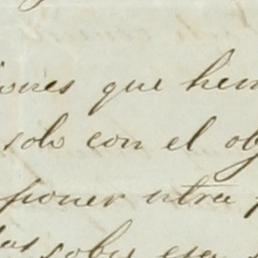 iones que hem
solo con el obj
poner otra p
las sobre esa